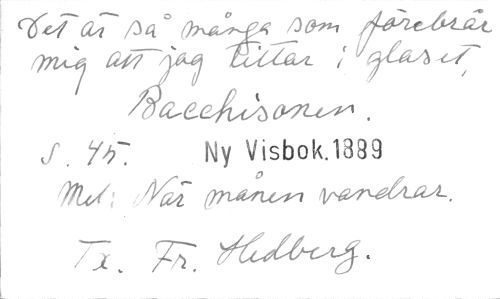 Det är så många som förebrår
mig att jag tittar i glaset,
Bacchisonen.
S. 45. Ny Visbok.1889
Mel: När månen vandrar.
Tx. Fr. Hedberg.